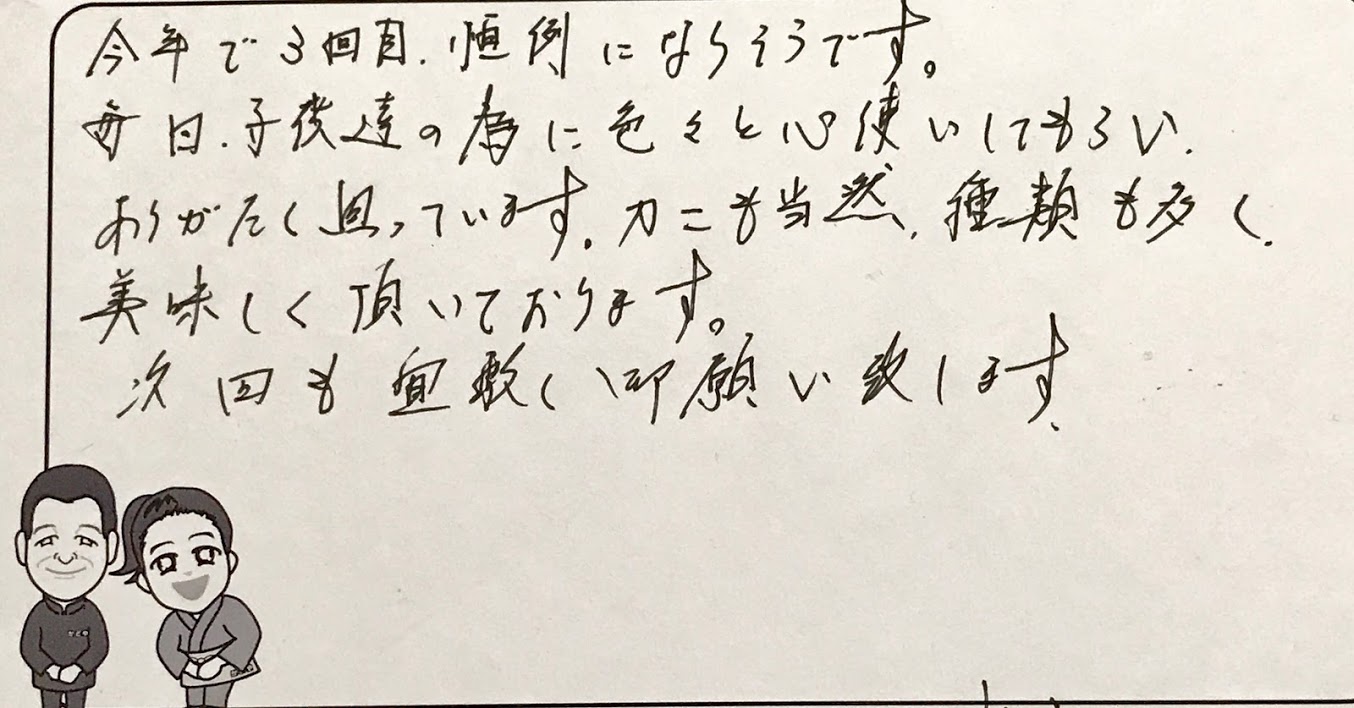 今年で3回目、恒例になりそうです。
毎日、子供達の為に色々と心使いしてもらい、
ありがたく思っています。カニも当然、種類も多く、
美味しく頂いております。
次回も宜敷く御願い致します。